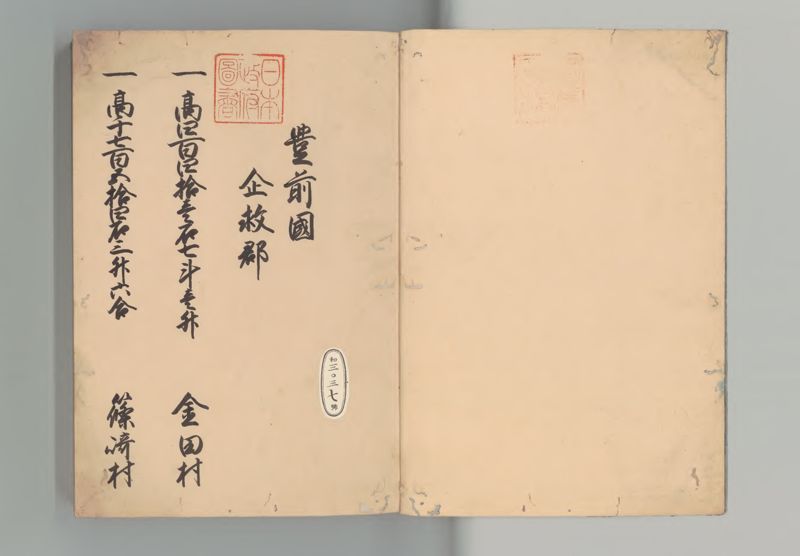 豐前國
企救郡
一高四百四拾壱石七斗壱升
金田村
一高千七百五拾四石三升六合
篠﨑村
日本
政府
圖書
和三〇三七號